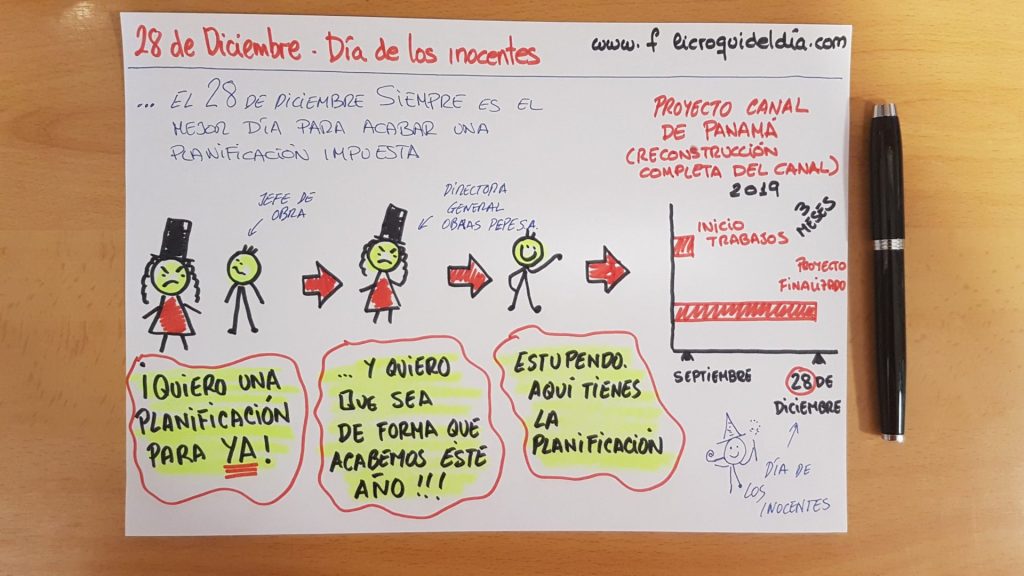 28 de Diciembre. Día de los inocentes
www.f elcroquideldía.com
... EL 28 DE DICIEMBRE SIEMPRE ES EL
MEJOR DÍA PARA ACABAR UNA
PLANIFICACIÓN IMPUESTA
JEFE DE
OBRA
DIRECTORA
GENERAL
OBRAS PEPESA.
¡QUIERO UNA
PLANIFICACIÓN
PARA YA!
... Y QUIERO
QUE SEA
DE FORMA QUE
ACABEMOS ÉSTE
AÑO!!!
ESTUPENDO.
AQUI TIENES
LA
PLANIFICACIÓN
PROYECTO CANAL
DE PANAMÁ
(RECONSTRUCCIÓN
COMPLETA DEL CANAL)
2019
3
MESES
INICIO
TRABAJOS
PROYECTO
FINALIZADO
SEPTIEMBRE
28 DE
DICIEMBRE
DÍA DE
LOS
INOCENTES